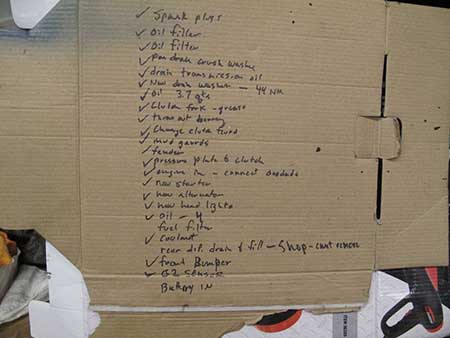 ✓ Spark plugs
✓ Oil filler
✓ Oil filter
✓ Pan drain crush washer
✓ drain transmission oil
✓ New drain washer — 44 NM
✓ Oil 3.7 qts
✓ Clutch fork - grease
✓ throw out bearing
✓ Change clutch fluid
✓ mud guards
✓ fender
✓ pressure plate & clutch
✓ engine in - connect
✓ new starter
✓ new alternator
✓ new head lights
✓ Oil - 4
fuel filter
✓ Coolant
rear dif. drain & fill — Shop - cant remove
✓ front Bumper
✓ O2 sensor
Battery IN